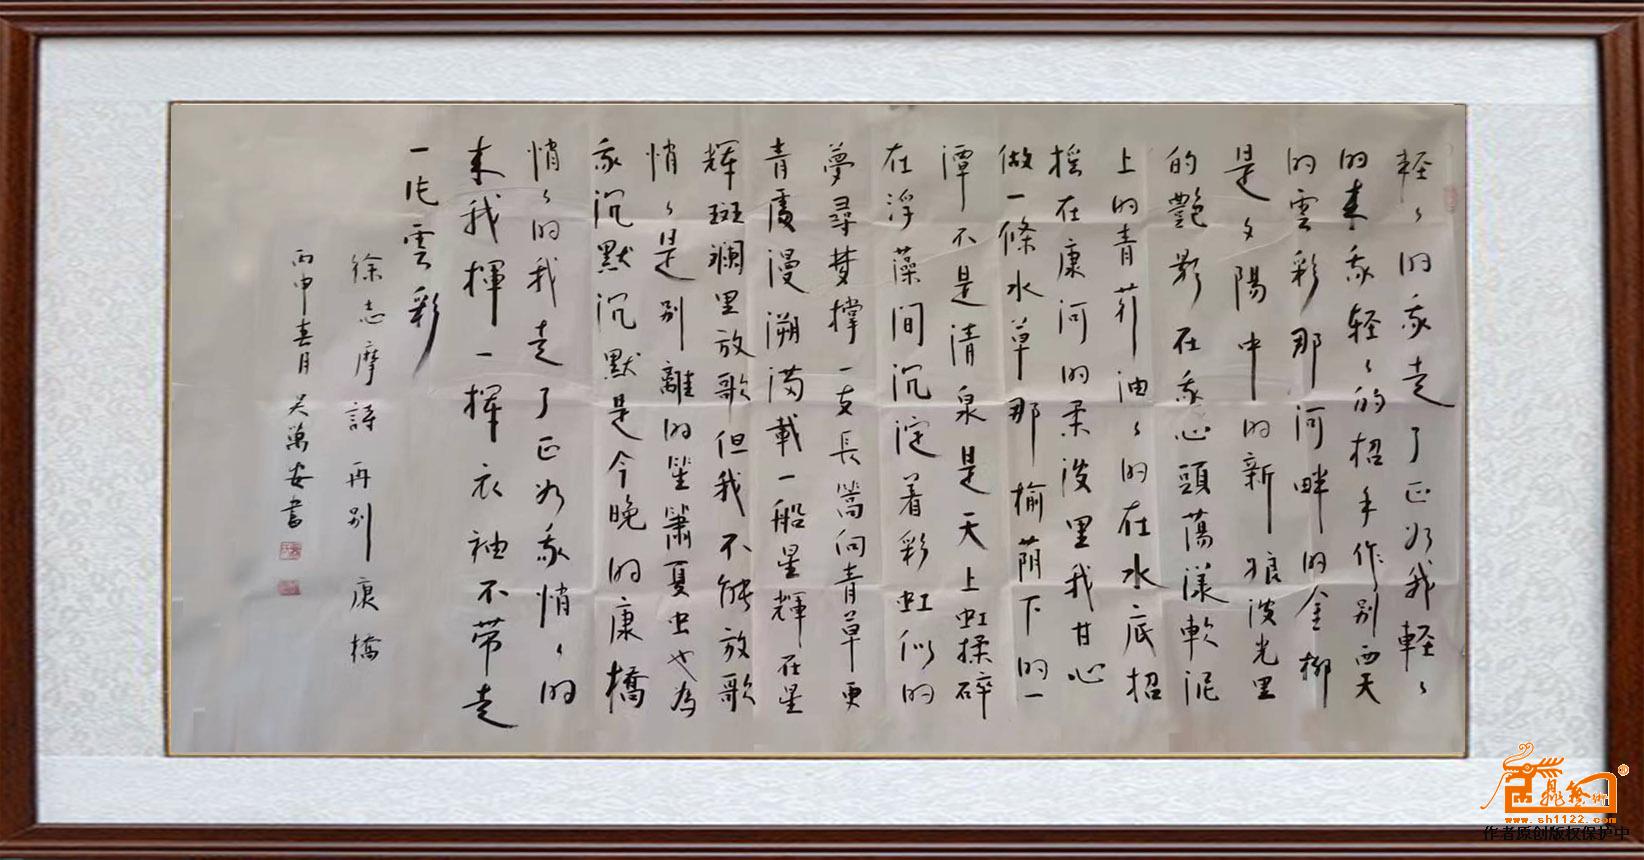 輕々的我走了正如我輕々
的来我轻々的招手作别西天
的雲彩那河畔的金柳
是夕陽中的新娘波光里
的艷影在我心頭蕩漾軟泥
上的青荇油々的在水底招
摇在康河的柔波里我甘心
做一條水草那榆荫下的一
潭不是清泉是天上虹揉碎
在浮藻間沉淀着彩虹似的
夢尋梦撑一支長篙向青草更
青處漫溯满載一船星輝在星
辉斑斓里放歌但我不能放歌
悄々是别離的笙簫夏虫也為
我沉默沉默是今晚的康橋
悄々的我走了正如我悄々的
来我揮一揮衣袖不带走
一片雲彩
徐志摩詩再别康橋
丙申春月吴萬安書
www.sh1122.com
作者原创版权保护中